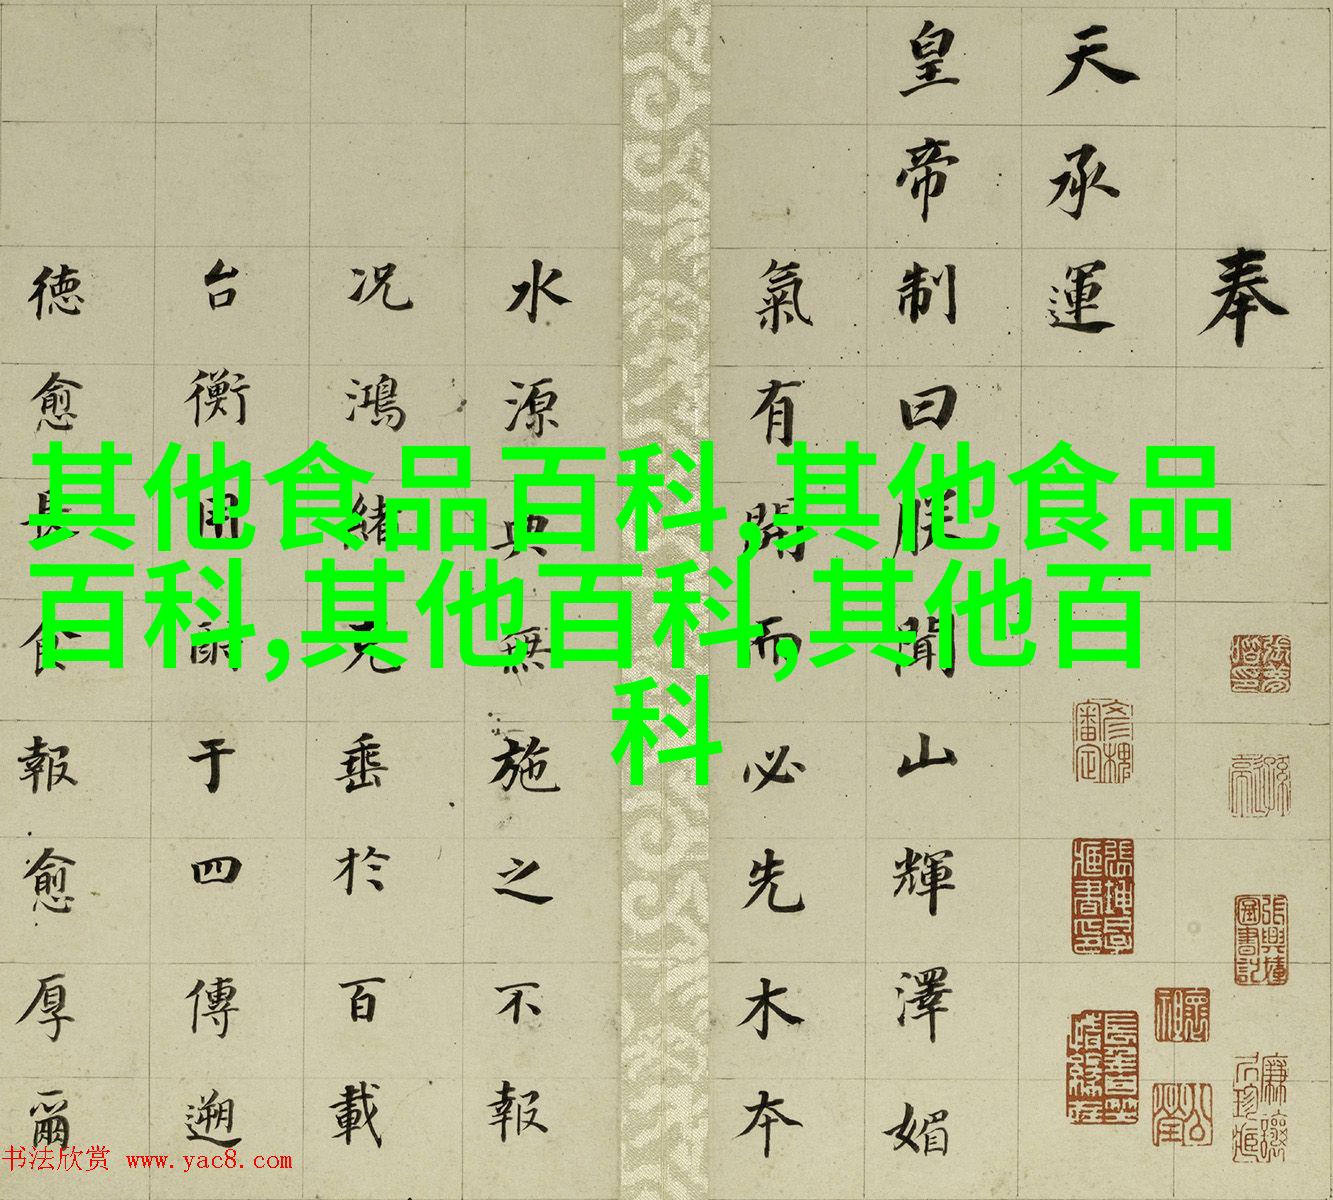 奉
天承運
皇帝制曰朕聞山輝澤媚
氣有開而必先木本
水源典無施之不報
况鴻緒克垂於百載
台衡用酬于四傳遡
德愈長食報愈厚爾
其他食品百科,其他食品
百科,其他百科,其他百
科
书法欣赏 www.yac8.com